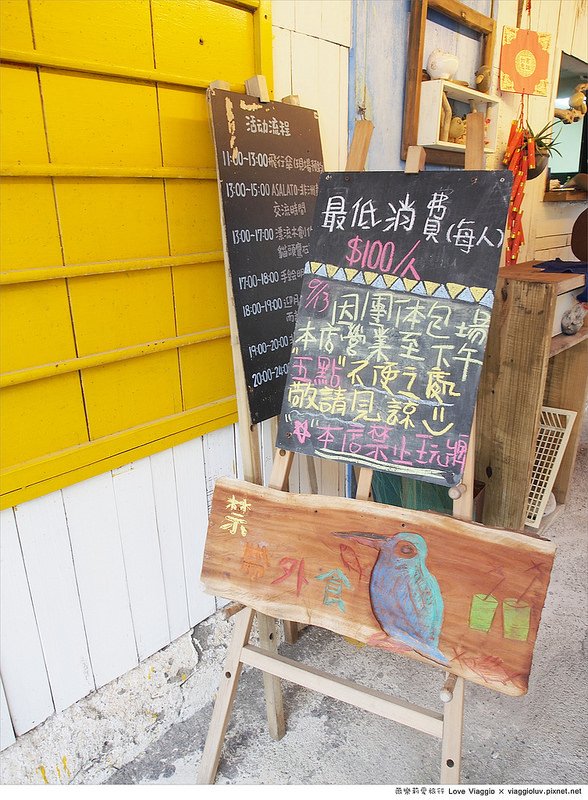 活动流程
11:00-13:00飛行傘(現場報
13:00-15:00 ASALATO
交流時間
13:00-17:00 漂流木
貓頭鷹
17:00-18:00 手繪明
18:00-19:00
19:00-20:00
20:00-24:00
最低消費(每人)
$100/人
9/13 因團体包場
本店營業至下午
"五點"不便之處
敬請見諒
"本店禁止玩網
禁
帶外食
薇樂莉愛旅行 Love Viaggio × viaggioluv.pixnet.net